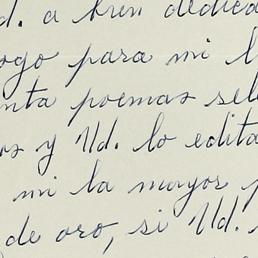 d. a bien dedica
ogo para mi l
nta poemas sele
os y Ud. lo edita
mi la mayor p
de oro, si Ud.